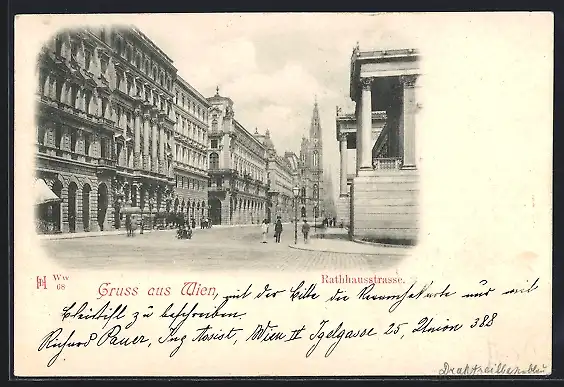 Ww
68
Gruss aus Wien, mit der Bitte die Ramschkarte nur mit
Rathhausstrasse.
Bleistift zu beschreiben.
Richard Pauer, Ing Assist. Wien II Igelgasse 25, Union 388